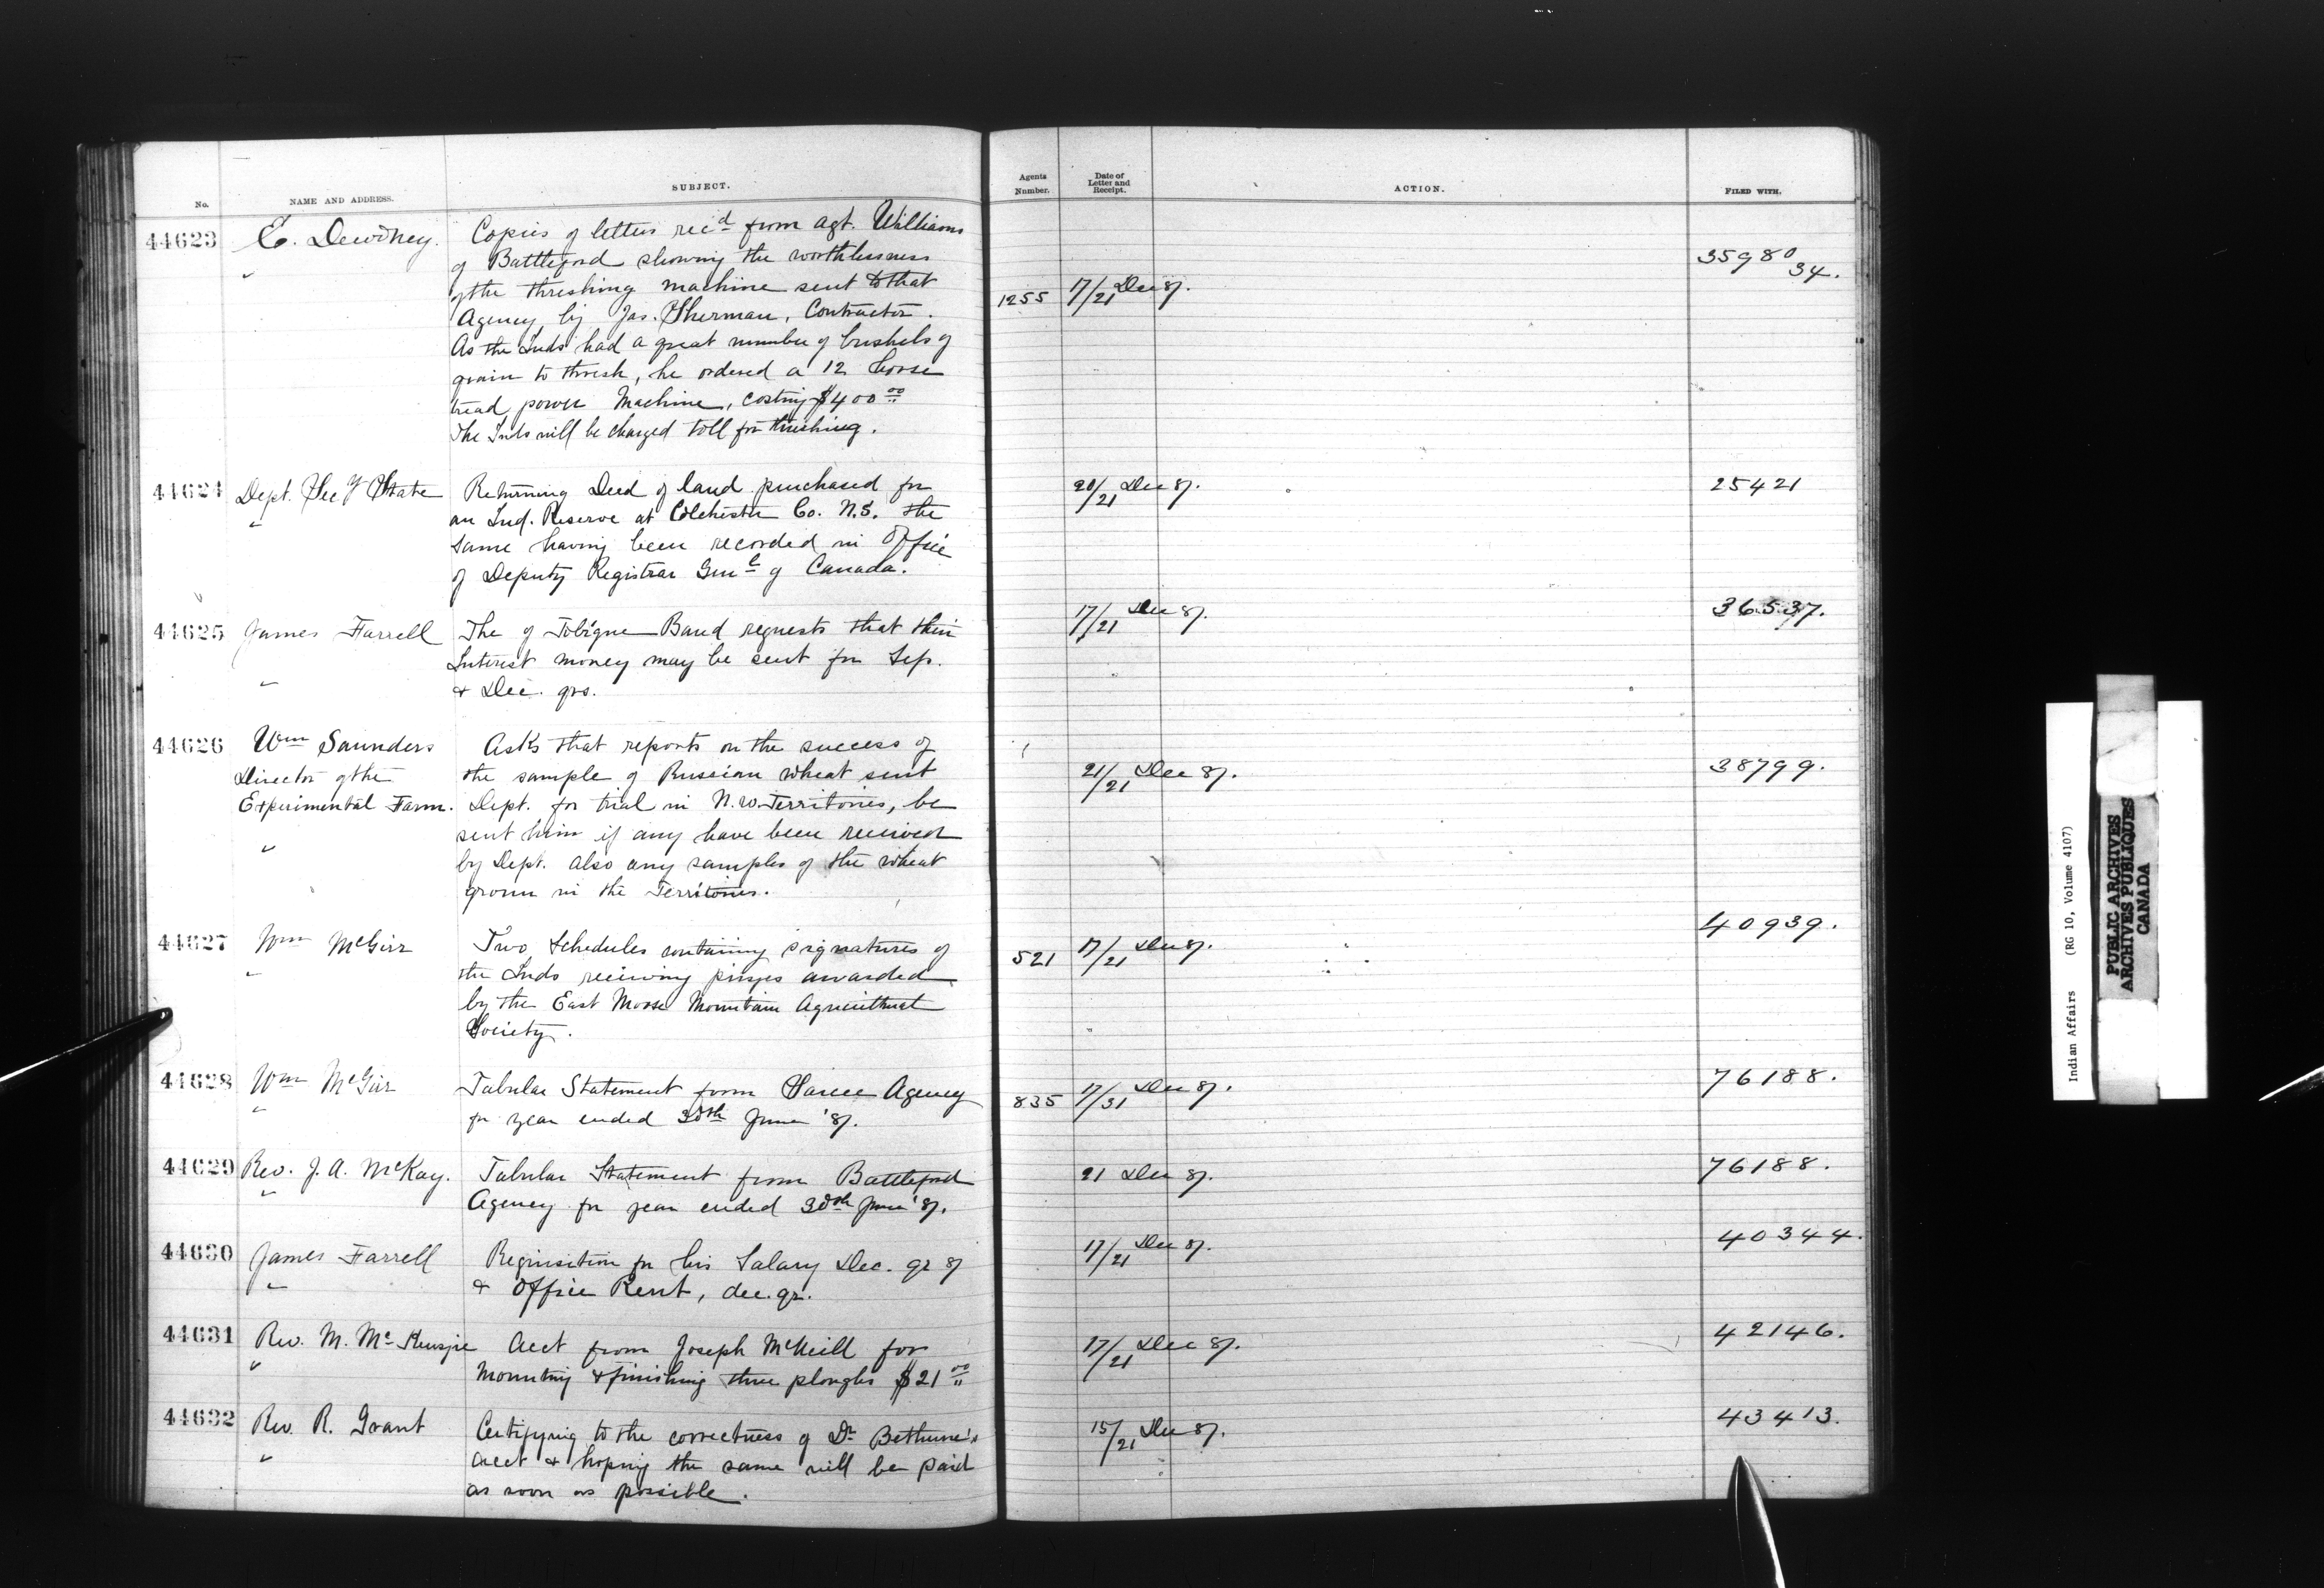 No. NAME AND ADDRESS. SUBJECT. Agents Number. Date of Letter and Receipt. ACTION. FILED WITH.
44623 E. Dewdney. Copies of letters rec'd from Agt. Williams
" of Battleford showing the worthlessness 35980 34.
of the threshing machine sent to that 1255 17/21 Dec 87.
Agency by Jas. Sherman, Contractor.
As the Inds had a great number of bushels of
grain to thresh, he ordered a 12 horse
tread power Machine, costing $400 00
The Inds will be charged toll for threshing.
44624 Dept. Sec y State Returning Deed of land purchased for 20/21 Dec 87. 25421
" an Ind. Reserve at Colchester Co. N.S. the
same having been recorded in Office
of Deputy Registrar Genl of Canada.
44625 James Farrell The of Tobique Band requests that their 17/21 Dec 87. 36537.
Interest money may be sent for Sep.
" & Dec. qrs.
44626 Wm Saunders Asks that reports on the success of
Director of the the sample of Russian wheat sent 21/21 Dec 87. 38799.
Experimental Farm. Dept. for trial in N.W. Territories, be
sent him if any have been received
" by Dept. also any samples of the wheat
grown in the Territories.
44627 Wm McGirr Two Schedules containing signatures of 521 17/21 Dec 87. 40939.
" the Inds receiving prizes awarded
by the East Moose Mountain Agricultural
Society.
44628 Wm McGirr Tabular Statement from Sarcee Agency 835 17/31 Dec 87. 76188.
" for year ended 30th June '87.
44629 Rev. J. A. McKay. Tabular Statement from Battleford 21 Dec 87. 76188.
" Agency for year ended 30th June '87.
44630 James Farrell Requisition for his Salary Dec. qr 87 17/21 Dec 87. 40344.
" & Office Rent, dec. qr.
44631 Rev. M. McKenzie Acct from Joseph McNeill for 17/21 Dec 87. 42146.
" Mounting & finishing three ploughs $21 00
44632 Rev. R. Grant Certifying to the correctness of Dr Bethune's 15/21 Dec 87. 43413.
" acct & hoping the same will be paid
as soon as possible.
Indian Affairs (RG 10, Volume 4107)
PUBLIC ARCHIVES
ARCHIVES PUBLIQUES
CANADA